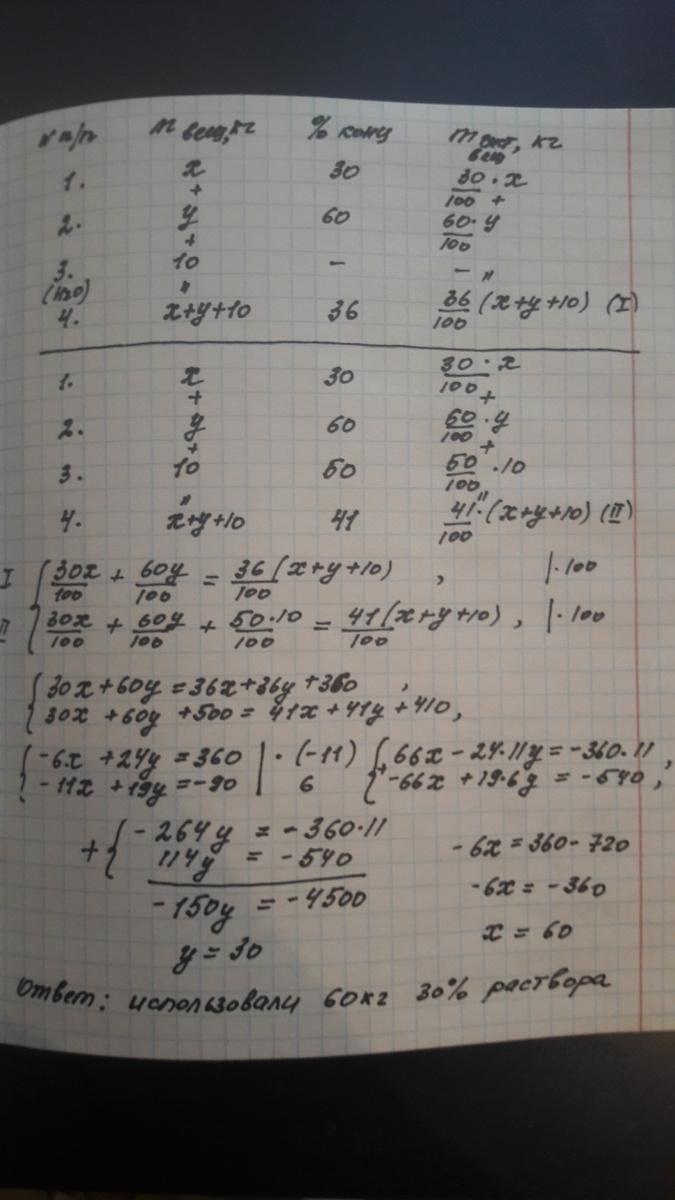 № п/п m вещ, кг % конц m раст вещ, кг
1. x 30 30/100 · x
+ +
2. y 60 60·y/100
+
3. (H2O) 10 – –
" "
4. x+y+10 36 36/100 (x+y+10) (I)
1. x 30 30/100 · x
+ +
2. y 60 60/100 · y
+ +
3. 10 50 50/100 · 10
" "
4. x+y+10 41 41/100 · (x+y+10) (II)
I { 30x/100 + 60y/100 = 36(x+y+10)/100 , | · 100
II { 30x/100 + 60y/100 + 50·10/100 = 41(x+y+10)/100 , | · 100
{ 30x+60y = 36x+36y+360 ,
{ 30x+60y+500 = 41x+41y+410,
{ -6x+24y = 360 | · (-11) { 66x - 24·11y = -360·11 ,
{ -11x+19y = -90 | 6 + { -66x+19·6y = -540 ,
+ { -264y = -360·11
{ 114y = -540
-150y = -4500
y = 30
-6x = 360-720
-6x = -360
x = 60
Ответ: использовали 60кг 30% раствора